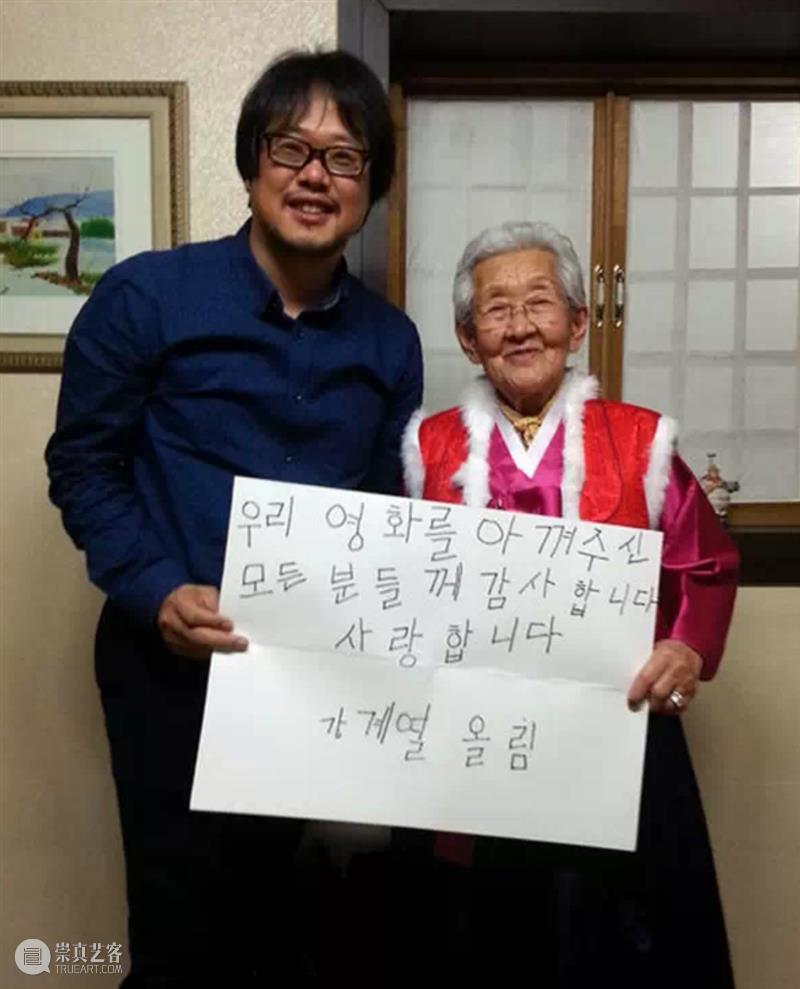 우리 영화를 아껴주신
모든 분들께 감사합니다
사랑합니다
강계열 올림
崇真艺客
TRUEART.COM